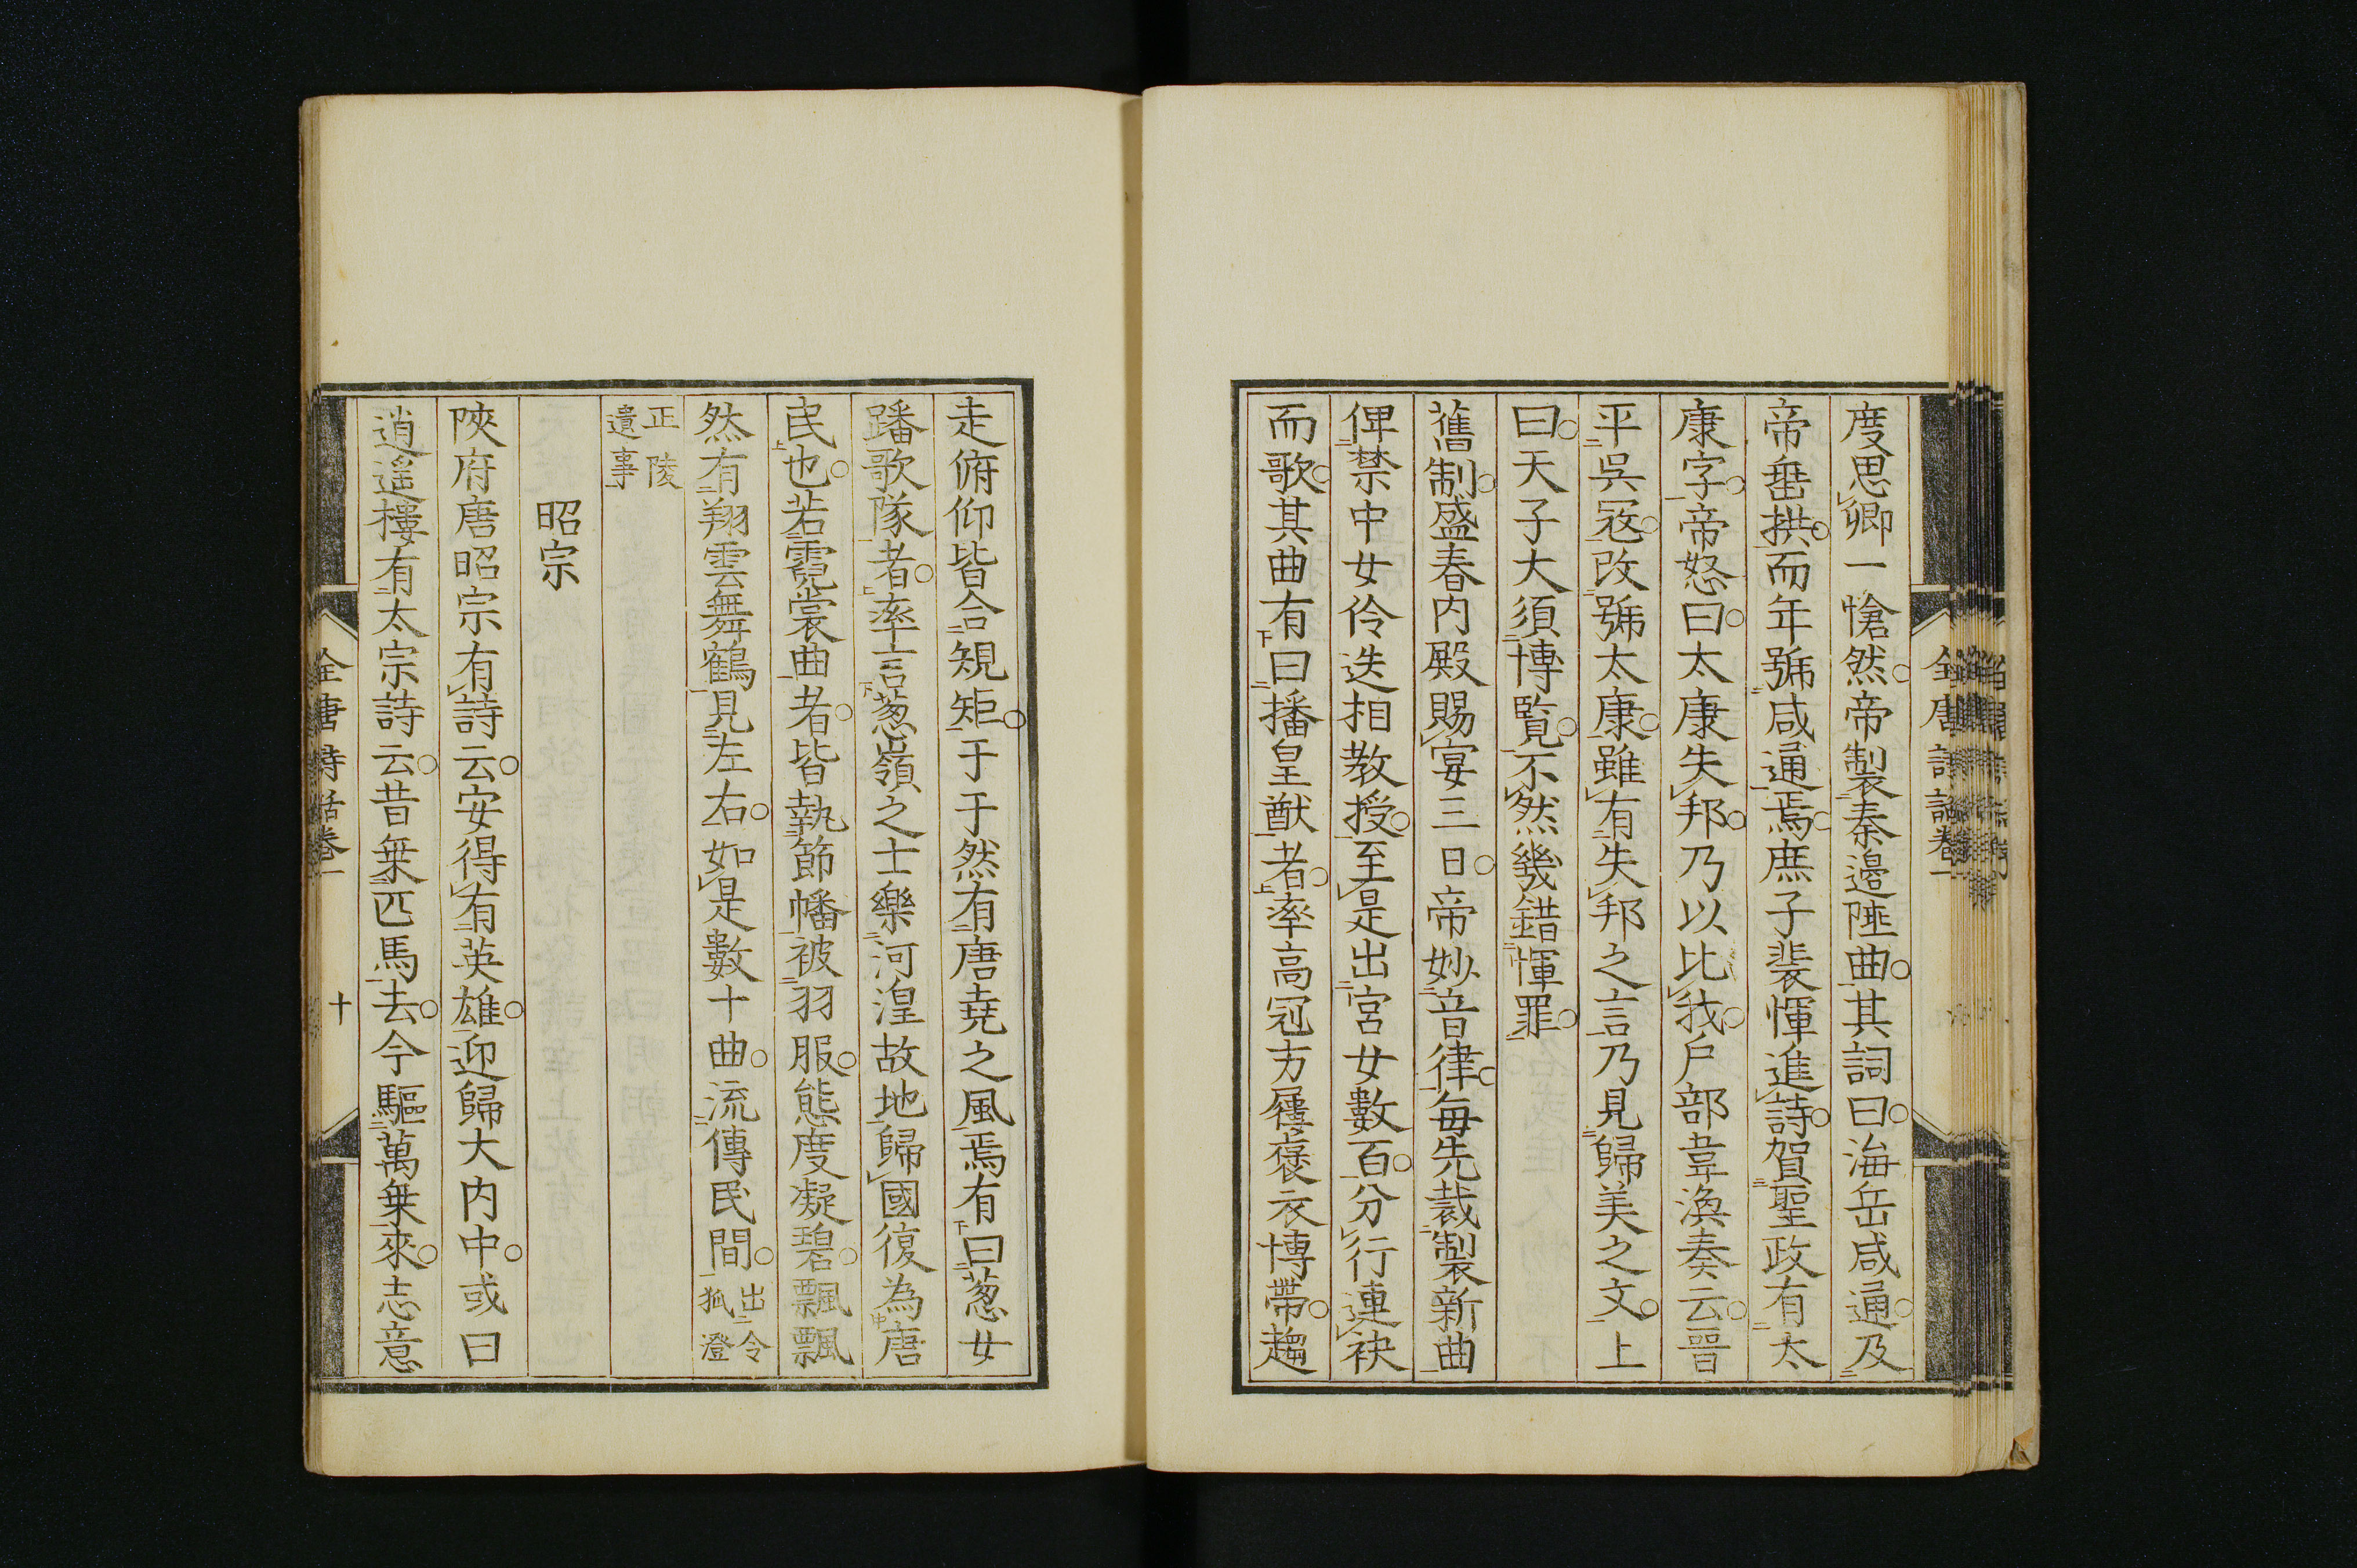 度思卿一愴然帝製秦邊陲曲其詞曰海岳咸通及
帝垂拱而年號咸通焉庶子裴惲進詩賀聖政有太
康字帝怒曰太康失邦乃以比我戶部韋渙奏云晉
平吳寇改號太康雖有失邦之言乃見歸美之文上
曰天子大須博覧不然幾錯惲罪
舊制盛春内殿賜宴三日帝妙音律每先裁製新曲
俾禁中女伶迭相教授至是出宮女數百分行連袂
而歌其曲有曰播皇猷者率高冠方履褒衣博帶趨
全唐詩話卷一
走俯仰皆合規矩于于然有唐堯之風焉有曰葱女
蹯歌隊者率言葱嶺之士樂河湟故地歸國復為唐
民也若霓裳曲者皆執節幡被羽服態度凝碧飄飄
然有翔雲舞鶴見左右如是數十曲流傳民間出令
狐澄
正陵
遺事
昭宗
陝府唐昭宗有詩云安得有英雄迎歸大内中或曰
逍遥樓有太宗詩云昔椉匹馬去今驅萬椉來志意
全唐詩話卷一
十